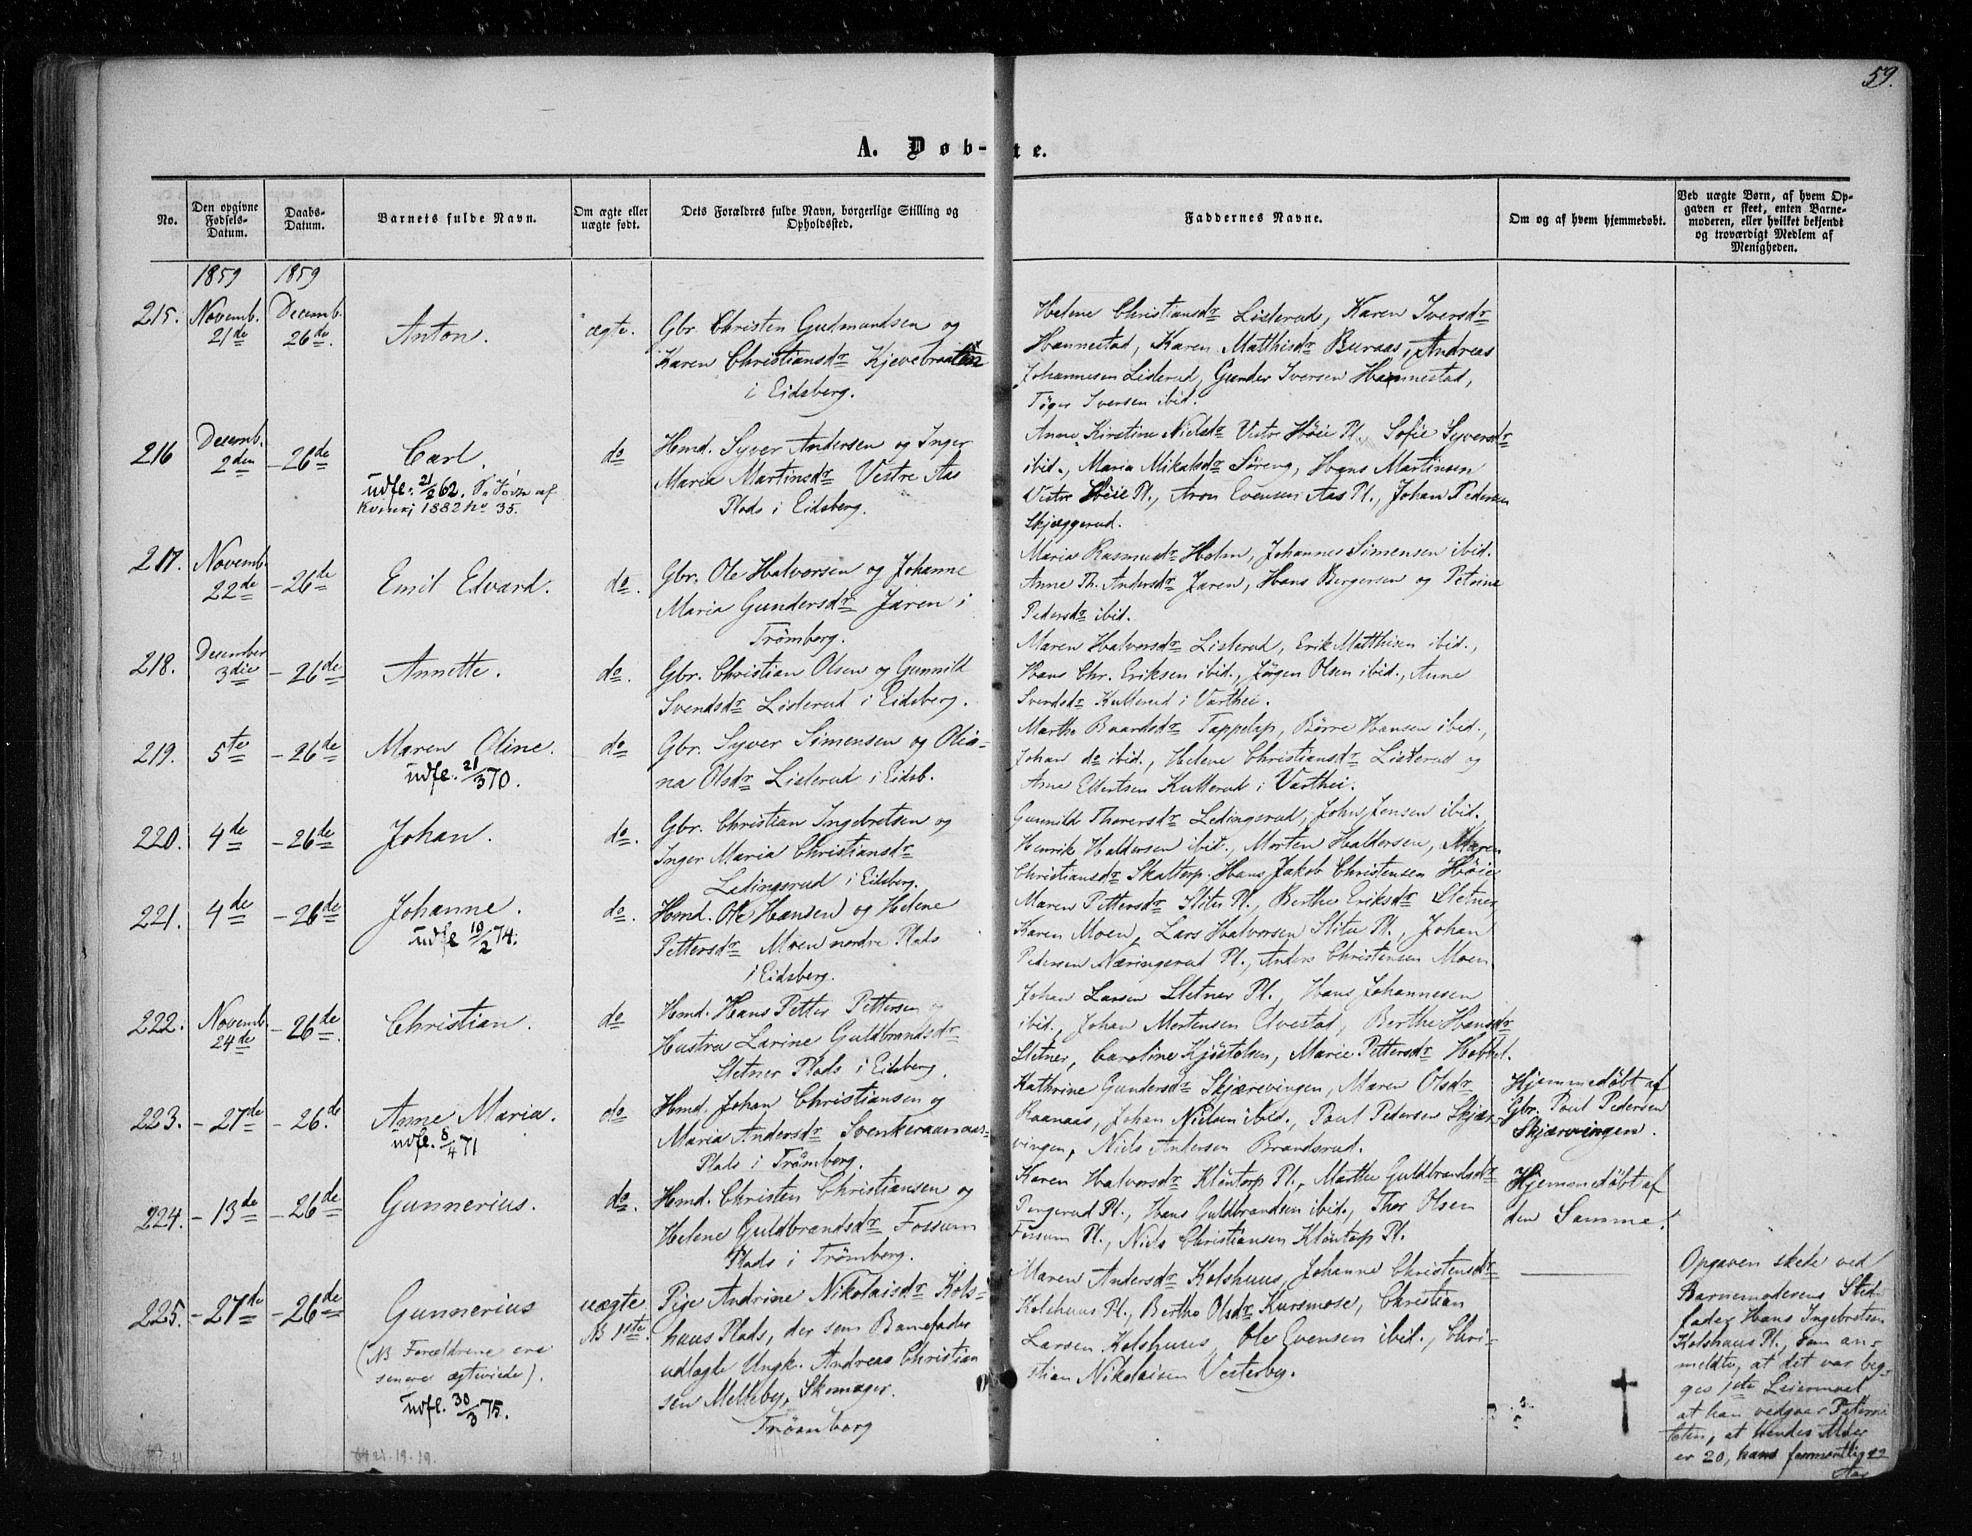 59.
A. Døb-te.
No.
Den opgivne Fødsels-Datum.
Daabs-Datum.
Barnets fulde Navn.
Om ægte eller uægte født.
Dets Forældres fulde Navn, borgerlige Stilling og Opholdssted.
Faddernes Navne.
Om og af hvem hjemmedøbt.
Ved uægte Børn, af hvem Opgaven er skeet, enten Barnemoderen, eller hvilket bekjendt og troværdigt Medlem af Menigheden.
1859 1859
215. Novemb. 21de Decemb. 26de Anton. ægte.
Gbr. Christen Gudmundsen og
Karen Christiansdr Kjevebraaten
i Eidsberg.
Helene Christiansdr Listerud, Karen Iversdr
Hannestad, Karen Matthisdr Buraas, Andreas
Johannesen Listerud, Gunder Iversen Hannestad,
Iversen ibid.
216 Decemb. 2den -26de Carl. do
udfl. 21/2 62.
1882 no 35.
Hmd. Syver Andersen og Inger
Maria Martinsdr Vestre Aas
Plads i Eidsberg.
Anne Kirstine Nielsdr Vestr Høie Pl., Sofie Syversdr
ibid., Maria Mikalsdr Søreng, Hans Martinsen
Vestr Høie Pl., Aron Evensen Aas Pl., Johan Pedersen
Skjæggerud.
217. Novemb. 22de -26de Emil Edvard. do.
Gbr. Ole Halvorsen og Johanne
Maria Gundersdr Jaren i
Trømborg.
Maria Rasmusdr Holm, Johannes Simensen ibid.
Anne Th. Andersdr Jaren, Hans Bergersen og Petrine
Pedersdr ibid.
218. December 3die -26de Annette. do.
Gbr. Christian Olsen og Gunnild
Svendsdr Listerud i Eidsberg.
Maren Halvorsdr Listerud, Erik Matthisen ibid.,
Hans Chr. Eriksen ibid., Jørgen Olsen ibid., Anne
Svendsdr Kulterud i Varthei.
219. 5te -26de Maren Oline. do
udfl. 21/3 70.
Gbr. Syver Simensen og Olia-
na Olsdr Listerud i Eidsb.
Marthe Baardsdr Tappelap, Børre Hansen ibid.,
Johan do ibid., Helene Christiansdr Listerud og
Arne Ellertsen Kulterud i Varthei.
220. 4de -26de Johan. do.
Gbr. Christian Ingebretsen og
Inger Maria Christiansdr
Ledingsrud i Eidsberg.
Gunnild Thorersdr Ledingsrud, John Jensen ibid.
Henrik Haldorsen ibid., Morten Haldorsen, Maren
Christiansdr Skattorp, Hans Jakob Christensen Høie
221. 4de -26de Johanne. do.
udfl 19/2 74.
Hmd. Ole Hansen og Helene
Pettersdr Moen nordre Plads
i Eidsberg.
Maren Pettersdr Slitu Pl., Berthe Eriksdr Sletner,
Karen Moen, Lars Halvorsen Slitu Pl., Johan
Pedersen Næringsrud Pl., Anders Christensen Moen.
222. Novemb. 24de -26de Christian. do
Hmd. Hans Petter Pettersen og
Hustru Larine Guldbrandsdr
Sletner Plads i Eidsberg.
Johan Larsen Sletner Pl., Hans Johannesen
ibid., Johan Mortensen Elvestad, Berthe Hansdr
Sletner, Caroline Kjøstelsen, Marie Pettersdr
223. -27de -26de Anne Maria. do
udfl. 8/4 71
Hmd. Johan Christiansen og
Maria Andersdr
Plads i Trømborg.
Kathrine Gundersdr Skjærvingen, Maren Olsdr
Raanaas, Johan Nielsen ibid., Poul Pedersen Skjær-
vingen, Niels Andersen Brandsrud.
Hjemmedøbt af
Gbr. Poul Pedersen
Skjærvingen.
224. -13de -26de Gunnerius. do.
Hmd. Christen Christiansen og
Helene Guldbrandsdr Fossum
Plads i Trømborg.
Karen Halvorsdr Kløntorp Pl., Marthe Guldbrandsdr
Pengerud Pl., Hans Guldbrandsen ibid., Thor Olsen
Fossum Pl., Niels Christiansen Kløntorp Pl.
Hjemmedøbt af
den Samme.
225. -27de -26de Gunnerius uægte
NB 1ste.
(NB Forældrene ere
senere ægteviede).
udfl. 30/3 75.
Pige Andrine Nikolaisdr Kols-
huus Plads, der som Barnefader
udlagte Ungk. Andreas Christian
sen Melleby, Skomager.
Trømborg
Maren Andersdr Kolshuus, Johanne Christensdr
Kolshuus Pl., Berthe Olsdr Kursmose, Christian
Larsen Kolshuus, Ole Evensen ibid., Chri-
stian Nikolaisen Vesterby.
Opgaven skede ved
Barnemoderens Sted-
fader Hans Ingebretsen
Kolshuus Pl., som an-
meldte, at det var beg-
ges 1ste Leiermaal
at han vedgaar Paterni
teten, at hendes Alder
er 20, hans formentlig 22
Aar